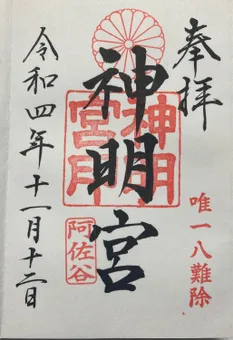 奉拝
唯一八難除
神明宮
神明宮印
阿佐谷
令和四年十一月十二日